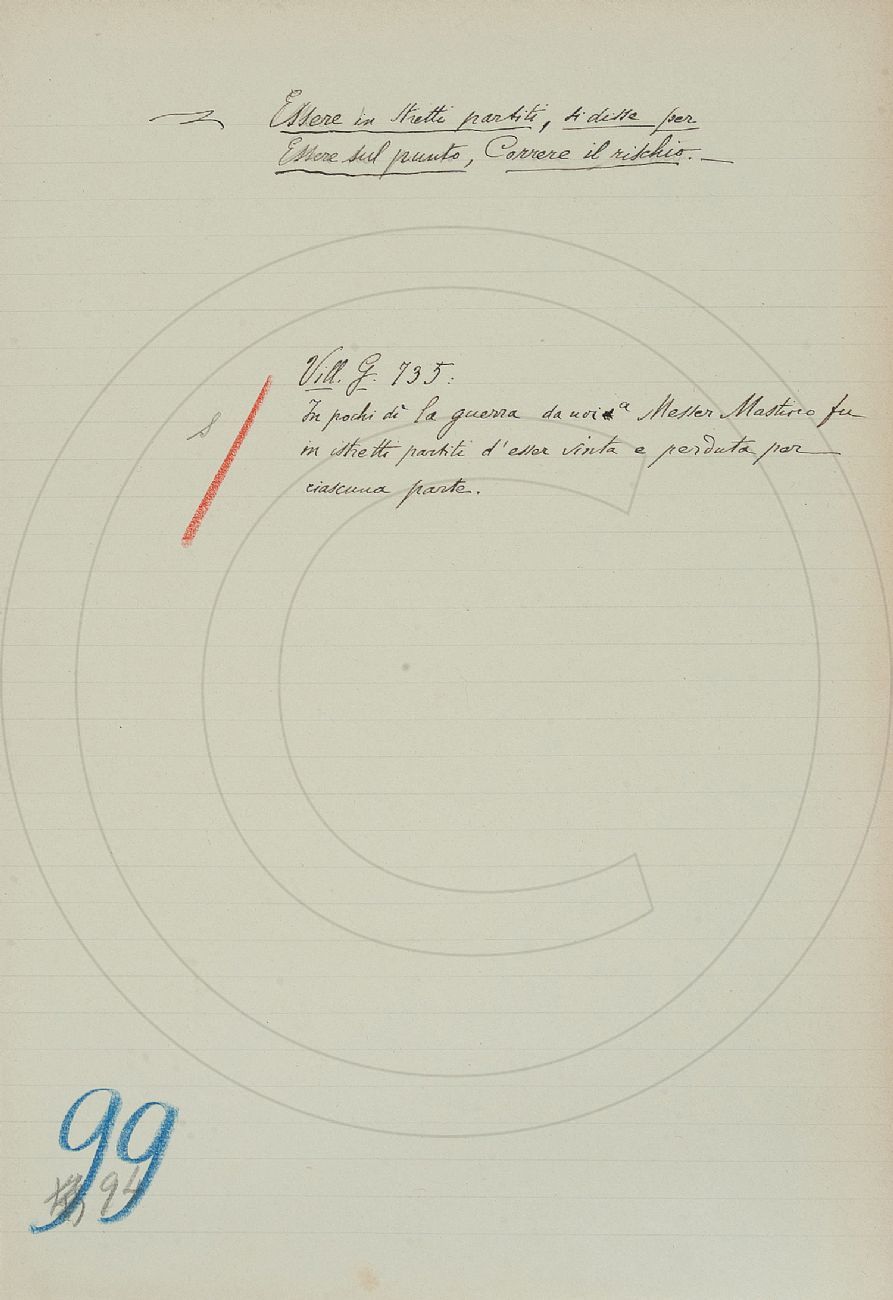 Essere in stretti partiti, si disse per
Essere sul punto, Correre il rischio. —
Vill. G. 735:
S
In pochi dì la guerra da noi a Messer Mastino fu
in istretti partiti d'esser vinta e perduta per
ciascuna parte.
99
94